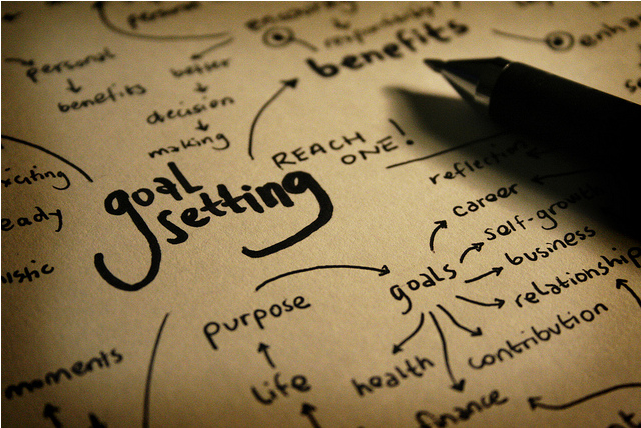 personal
encouraging
responsibility
enhan
personal
benefits
better
decision
making
benefits
REACH
ONE!
goal
setting
xciting
eady
listic
reflection
career
self-growth
business
relationship
contribution
goals
health
finance
purpose
life
moments